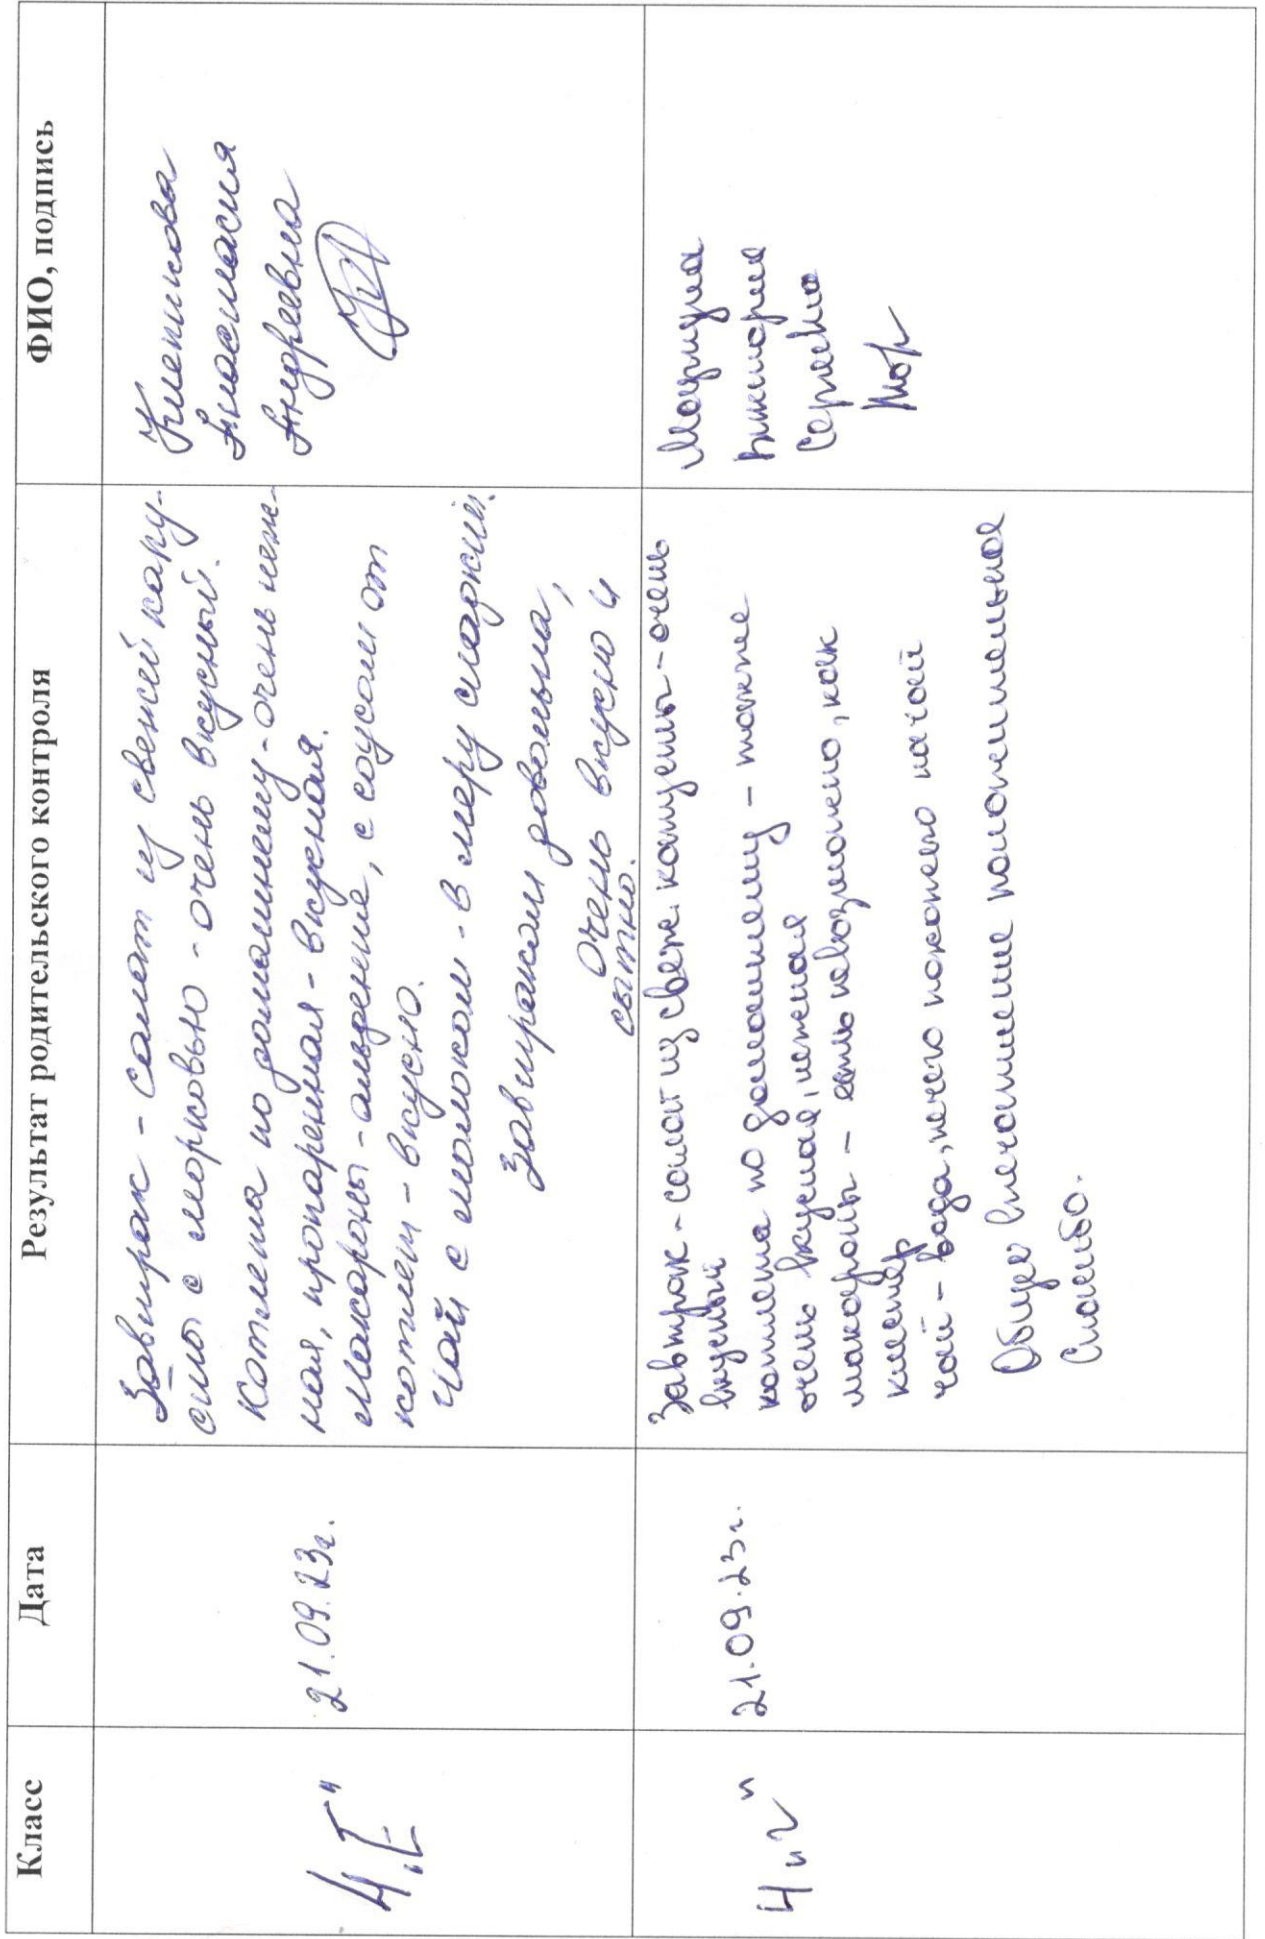 Класс Дата Результат родительского контроля ФИО, подпись
4 „Г"
21.09.23г.
Завтрак - салат из свежей капу-
сты с морковью - очень вкусный.
Котлета по домашнему - очень неж-
ная, пропаренная - вкусная.
Макароны - отварные, с соусом от
котлет - вкусно.
Чай с молоком - в меру сладкий.
Завтраком довольна,
очень вкусно и
сытно.
Анастасия
Андреевна
4 „г"
21.09.23г.
Завтрак - салат из свеж. капусты - очень
вкусный
котлета по домашнему - также
очень вкусная, нежная
макароны - есть невозможно, как
клестер
чай - вода, нечего похожего на чай
Общее впечатление положительное
Спасибо.
Виктория
Сергеевна